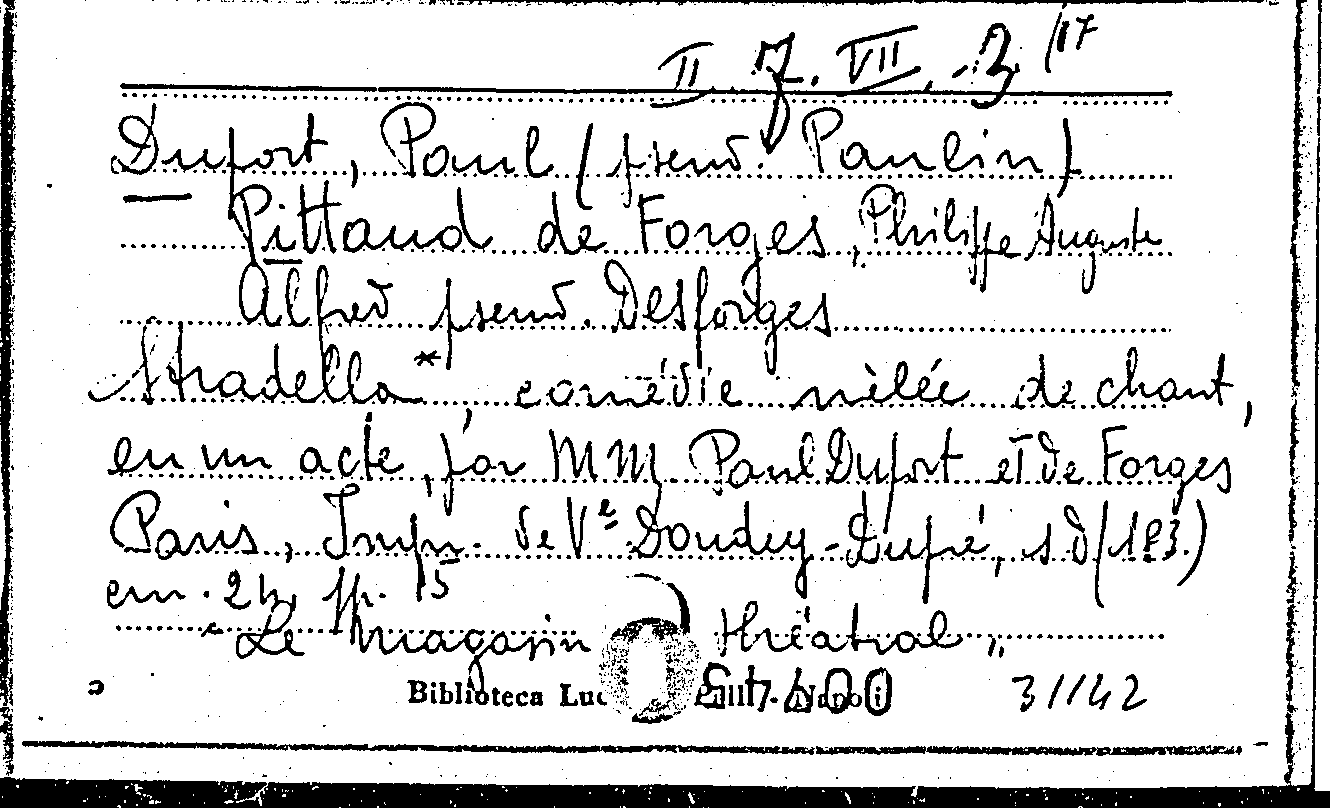 II. 7. VII. 3/17
Dufort, Paul (pseud. Paulin)
Pittaud de Forges, Philippe Auguste
Alfred pseud. Desforges
Stradella*, comédie mêlée de chant,
en un acte, par MM Paul Dufort et de Forges
Paris, Impr. de Ve Dondey-Dupré, s.d (183.)
cm. 24, pp. 15
"Le magasin théatral"
Biblioteca
31142